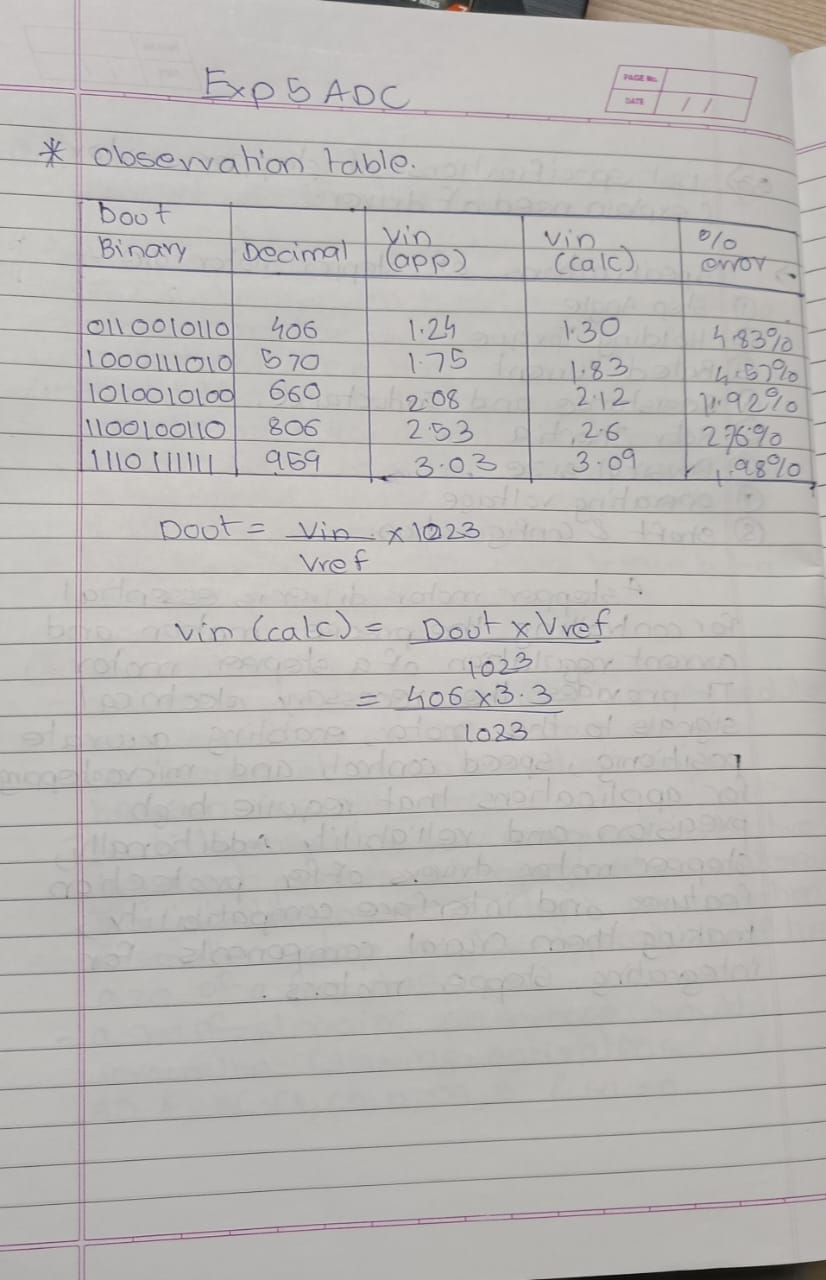 Exp 5 ADC
PAGE No.
DATE / /
* Observation table.
Dout Binary | Decimal | Vin (app) | Vin (calc) | % error
0110010110 406 1.24 1.30 4.83%
1000111010 570 1.75 1.83 4.57%
1010010100 660 2.08 2.12 1.92%
1100100110 806 2.53 2.6 2.76%
1110111111 959 3.03 3.09 1.98%
Dout = Vin / Vref × 1023
Vin (calc) = Dout × Vref / 1023
= 406 × 3.3 / 1023